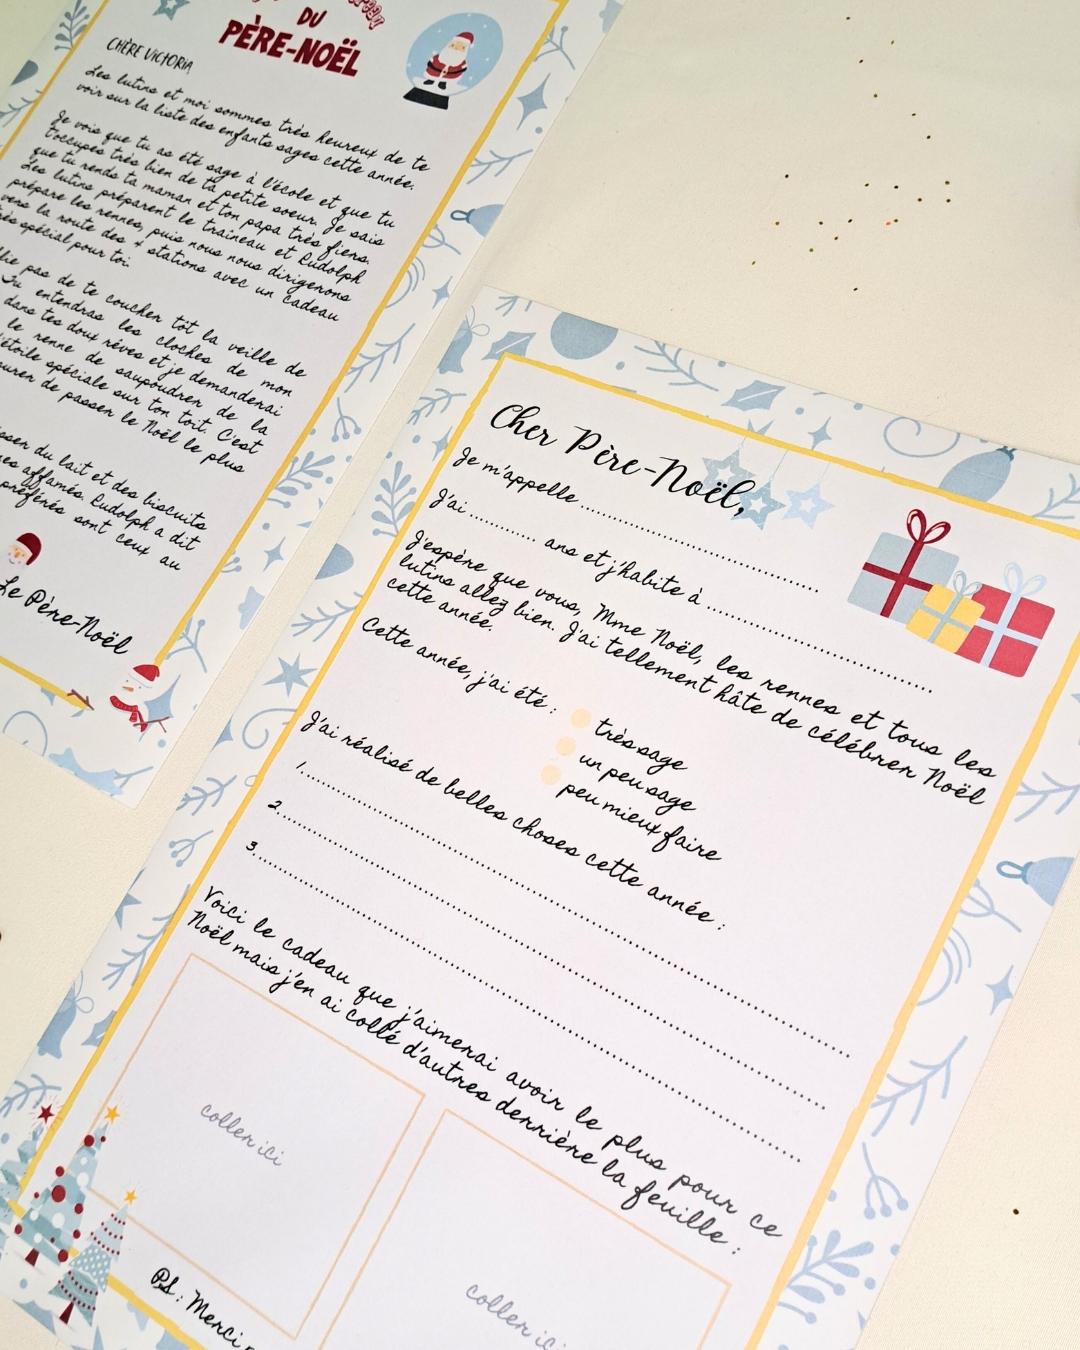 DU
PÈRE-NOËL
CHÈRE VICTORIA
Les lutins et moi sommes très heureux de te
voir sur la liste des enfants sages cette année.
Je vois que tu as été sage à l'école et que tu
t'occupes très bien de ta petite soeur. Je sais
que tu rends ta maman et ton papa très fiers.
Les lutins préparent le traîneau et Rudolph
prépare les rennes, puis nous nous dirigerons
vers la route des 4 stations avec un cadeau
très spécial pour toi.
pas de te coucher tôt la veille de
Tu entendras les cloches de mon
dans tes doux rêves et je demanderai
le renne de saupoudrer de la
étoile spéciale sur ton toit. C'est
de passer le Noël le plus
du lait et des biscuits
affamés, Rudolph a dit
préférés sont ceux au
Le Père-Noël
Cher Père-Noël,
Je m'appelle ........................................
J'ai .......... ans et j'habite à ........................................
J'espère que vous, Mme Noël, les rennes et tous les
lutins allez bien. J'ai tellement hâte de célébrer Noël
cette année.
Cette année, j'ai été :
très sage
un peu sage
peu mieux faire
J'ai réalisé de belles choses cette année :
1. ........................................
2. ........................................
3. ........................................
Voici le cadeau que j'aimerai avoir le plus pour ce
Noël mais j'en ai collé d'autres derrière la feuille :
coller ici
coller ici
P.S : Merci